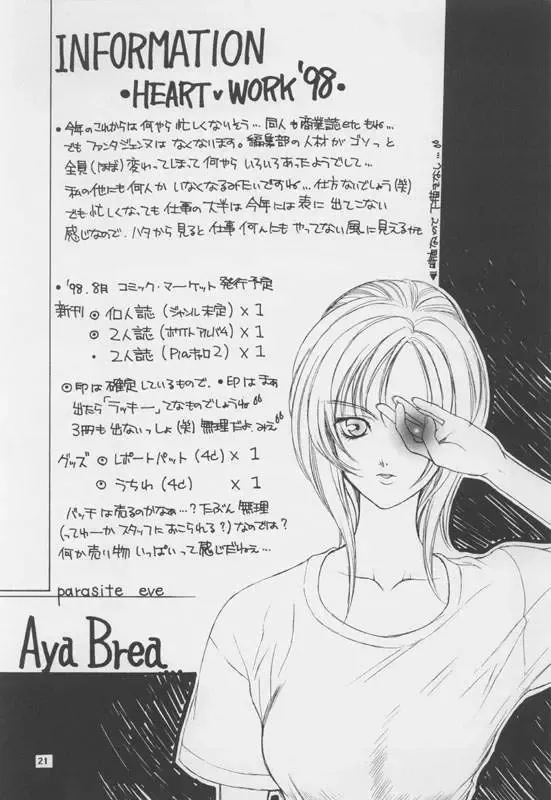 INFORMATION
・HEART♥WORK '98・
・今年のこれからは何やら忙しくないそう…同人や商業誌etcもね…
でもファンタジェンヌはなくなります。編集部の人材がゴソっと
全員(ほぼ)変わってしまって何やらいろいろあったようでして…
私の他にも何人かいなくなるみたいですね…仕方ないでしょう(笑)
でも忙しくなっても仕事の大半は今年には表に出てこない
感じなので、ハタから見ると仕事何んにもやってない風に見えるかも
・'98.8月 コミック・マーケット 発行予定
新刊 ◎ 個人誌(ジャンル未定)×1
◎ 2人誌(ポケットアルバム)×1
・ 2人誌(Piaキャロ2)×1
◎印は確定しているもので、・印はまぁ
出たら「ラッキー」てなものでしょうね
3冊も出ないっしょ(笑)無理だよ、みえ
グッズ ◎ レポートパット(4c)×1
◎ うちわ(4c) ×1
バッチは売るのかなぁ…?たぶん無理
(ってゆーかスタッフにおこられる?)なのでは?
何か売り物いっぱいって感じだねえ…
parasite eve
Aya Brea...
21